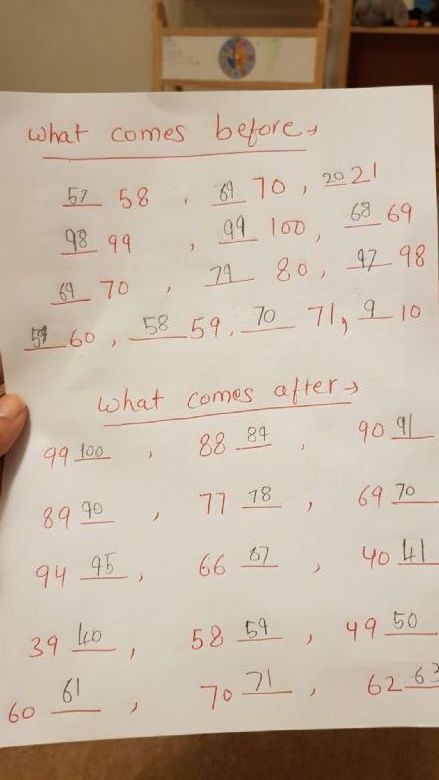 What comes before→
57 58 , 69 70 , 20 21
98 99 , 99 100 , 68 69
69 70 , 79 80 , 97 98
59 60 , 58 59 . 70 71 , 9 10
What comes after→
99 100 , 88 89 , 90 91
89 90 , 77 78 , 69 70
94 95 , 66 67 , 40 41
39 40 , 58 59 , 49 50
60 61 , 70 71 , 62 63